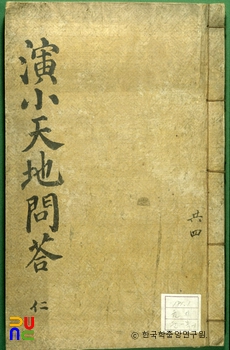 演小天地問答
仁
共四
ⓒ 한국학중앙연구원